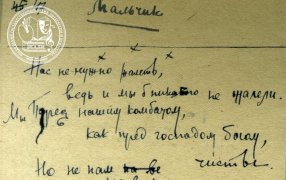 45
Мальчик
Нас не нужно жалеть,
ведь и мы б никого не жалели.
Мы Пред нашим комбатом,
как пред господом богом,
чисты.